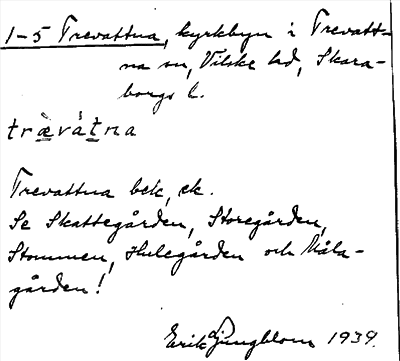 1-5 Trevattna, kyrkbyn i Trevatt-
na sn, Vilske hd, Skara-
borgs l.
trævatna
Trevattna bek, ek.
Se Skattegården, Storegården,
Stommen, Hulegården och Måla-
gården!
Erik Ljungblom 1939.